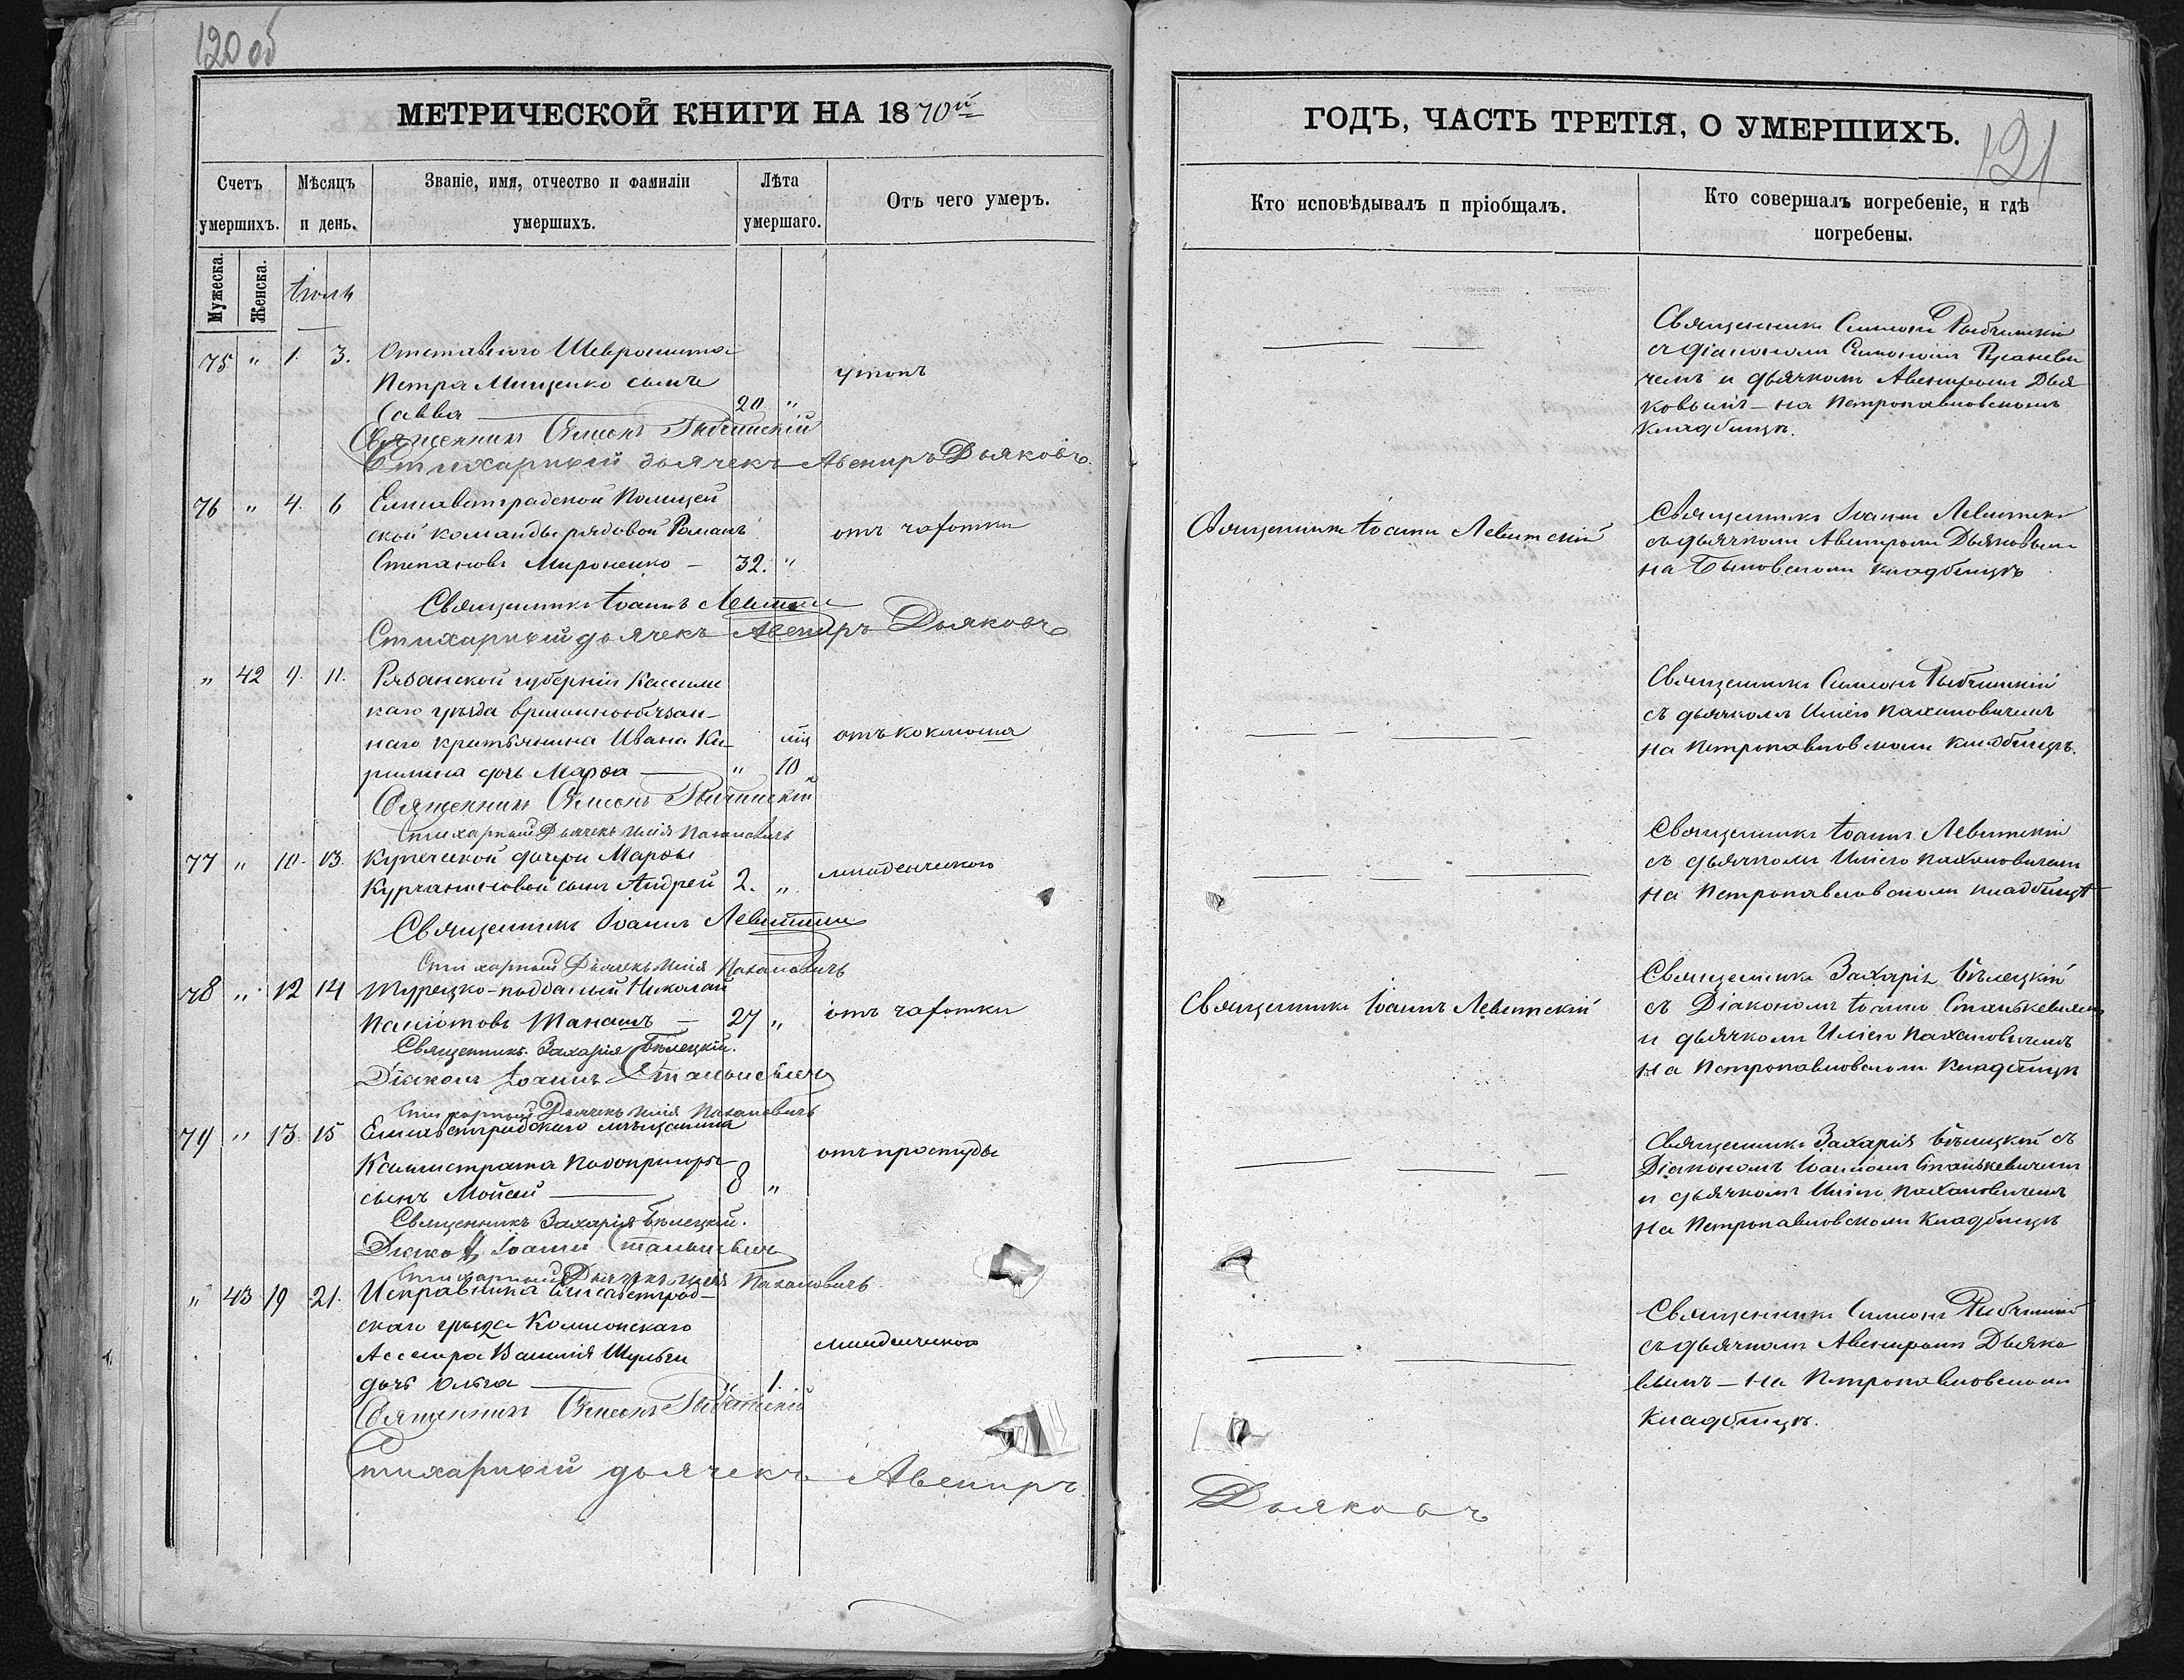 120 об
МЕТРИЧЕСКОЙ КНИГИ НА 1870й
Счетъ умершихъ.
Мѣсяцъ и день.
Званіе, имя, отчество и фамиліи умершихъ.
Лѣта умершаго.
Отъ чего умеръ.
Мужеска.
Женска.
Іюль
75 " 1. 3. Отставнаго Шевронита
Петра Мищенко сынъ
Савва 20 "
утопъ
Священникъ Симеонъ Рыбчинскій
Стихарный дьячекъ Авениръ Дьяковъ.
76 " 4. 6 Елисаветградской Полицей
ской команды рядовой Романъ
Степановъ Мироненко — 32. "
отъ чахотки
Священникъ Іоаннъ Левитскій
Стихарный дьячекъ Авениръ Дьяковъ
" 42 9. 11. Рязанской губерніи Касимс
каго уѣзда временнообязан-
наго крестьянина Ивана Ки-
рилина дочь Марѳа — " мѣц 10
отъ коклюша
Священникъ Симеонъ Рыбчинскій
Стихарный Дьячекъ Илія Пахановичъ
77 " 10. 13. Купеческой дочери Марѳы
Курчаниновой сынъ Андрей 2. "
младенческаго
Священникъ Іоаннъ Левитскій
Стихарный Дьячекъ Илія Пахановичъ
78 " 12 14 Турецко-подданый Николай
Танашъ — 27 "
отъ чахотки
Священникъ Захарія Бѣлецкій.
Діаконъ Іоаннъ Станькевичъ
Стихарный Дьячекъ Илія Пахановичъ
79 " 13. 15 Елисаветградскаго мѣщанина
Каллистрата Подопригоры
сынъ Мойсей — 8 "
отъ простуды
Священникъ Захарія Бѣлецкій.
Діаконъ Іоаннъ Станькевичъ
Стихарный Дьячекъ Илія Пахановичъ
" 43 19 21. Исправника Елисаветград-
скаго уѣзда Коллежскаго
Ассесора Василія Шульги
дочь Ольга — " 1.
младенческаго
Священникъ Симеонъ Рыбчинскій
Стихарный дьячекъ Авениръ
ГОДЪ, ЧАСТЬ ТРЕТІЯ, О УМЕРШИХЪ.
121
Кто исповѣдывалъ и пріобщалъ.
Кто совершалъ погребеніе, и гдѣ погребены.
Священникъ Симеонъ Рыбчинскій
съ діакономъ
чемъ и дьячкомъ Авениромъ Дья
ковымъ — на Петропавловскомъ
Кладбищѣ.
Священникъ Іоаннъ Левитскій
Священникъ Іоаннъ Левитскій
съ дьячкомъ Авениромъ Дьяковымъ
на Быковскомъ кладбищѣ
Священникъ Симеонъ Рыбчинскій
съ дьячкомъ Иліею Пахановичемъ
на Петропавловскомъ кладбищѣ.
Священникъ Іоаннъ Левитскій
съ дьячкомъ Иліею Пахановичемъ
на Петропавловскомъ кладбищѣ
Священникъ Іоаннъ Левитскій
Священникъ Захарія Бѣлецкій
съ Діакономъ Іоанномъ Станькевичемъ
и дьячкомъ Иліею Пахановичемъ
на Петропавловскомъ Кладбищѣ
Священникъ Захарія Бѣлецкій съ
Діакономъ Іоанномъ Станькевичемъ
и дьячкомъ Иліею Пахановичемъ
на Петропавловскомъ Кладбищѣ
Священникъ Симеонъ Рыбчинскій
съ дьячкомъ Авениромъ Дьяко
вымъ — на Петропавловскомъ
Кладбищѣ.
Дьяковъ